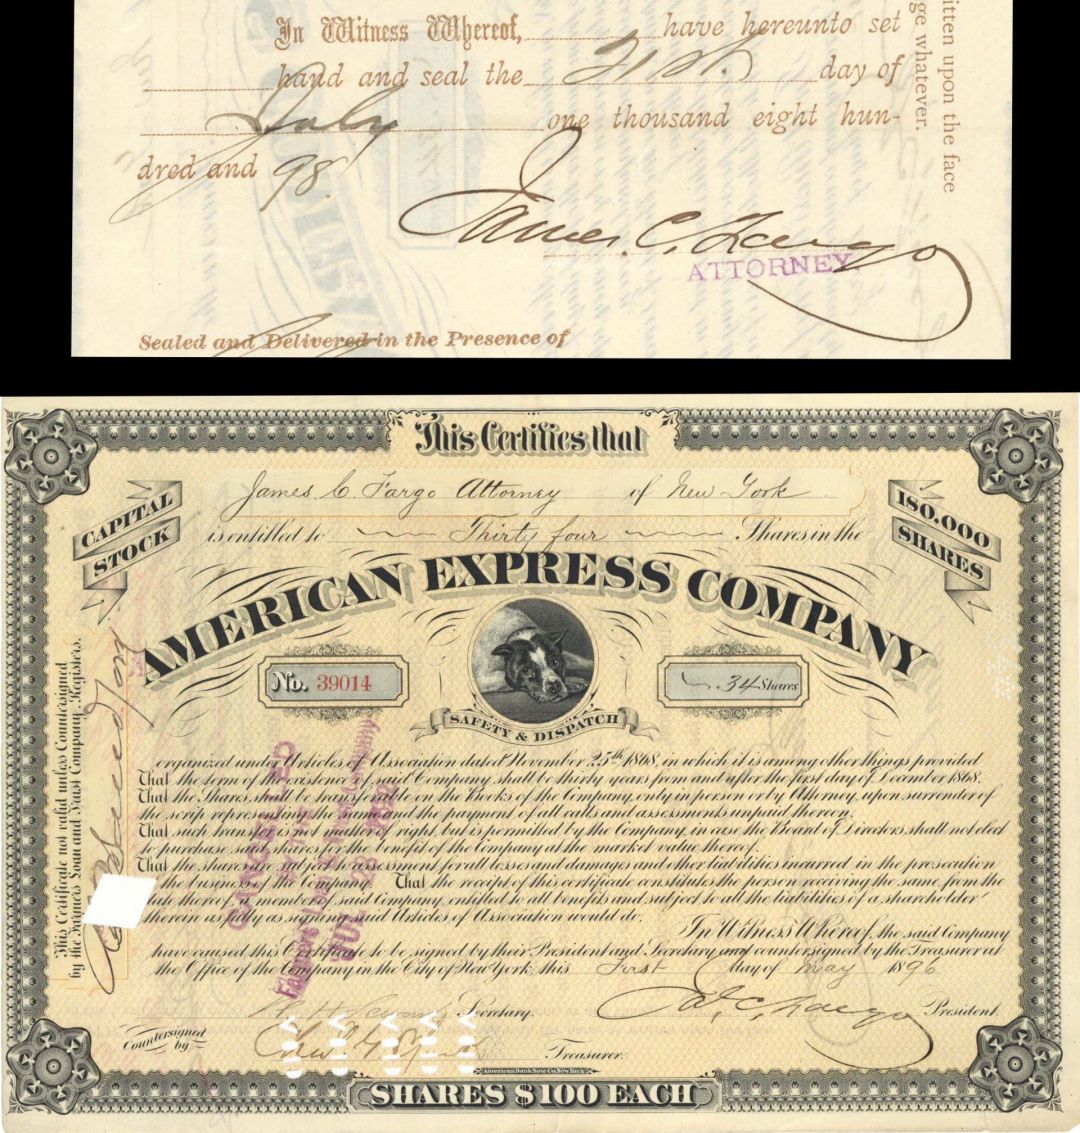 In Witness Whereof, have hereunto set
hand and seal the 21st. day of
July one thousand eight hun-
dred and 98
James C. Fargo
ATTORNEY.
Sealed and Delivered in the Presence of
itten upon the face
ge whatever.
This Certifies that
James C. Fargo Attorney of New York
is entitled to Thirty four Shares in the
CAPITAL STOCK
180,000 SHARES
AMERICAN EXPRESS COMPANY
No. 39014
34 Shares
SAFETY & DISPATCH
This Certificate not valid unless Countersigned
by the Farmers Loan and Trust Company, Registers.
organized under Articles of Association dated November 25th 1868, in which it is among other things provided
That the term of the existence of said Company shall be thirty years from and after the first day of December 1868.
That the Shares shall be transferable on the Books of the Company, only in person or by Attorney, upon surrender of
the scrip representing the same and the payment of all calls and assessments unpaid thereon.
That such transfer is not matter of right, but is permitted by the Company, in case the Board of Directors shall not elect
to purchase said shares for the benefit of the Company at the market value thereof.
That the shares are subject to assessment for all losses and damages and other liabilities incurred in the prosecution
the business of the Company. That the receipt of this certificate constitutes the person receiving the same from the
date thereof a member of said Company, entitled to all benefits and subject to all the liabilities of a shareholder
therein as fully as signing said Articles of Association would do.
In Witness Whereof, the said Company
have caused this Certificate to be signed by their President and Secretary and countersigned by the Treasurer at
the Office of the Company in the City of New York, this First day of May 1896
Secretary.
Jas. C. Fargo President.
Countersigned by
Treasurer.
American Bank Note Co. New York
SHARES $100 EACH